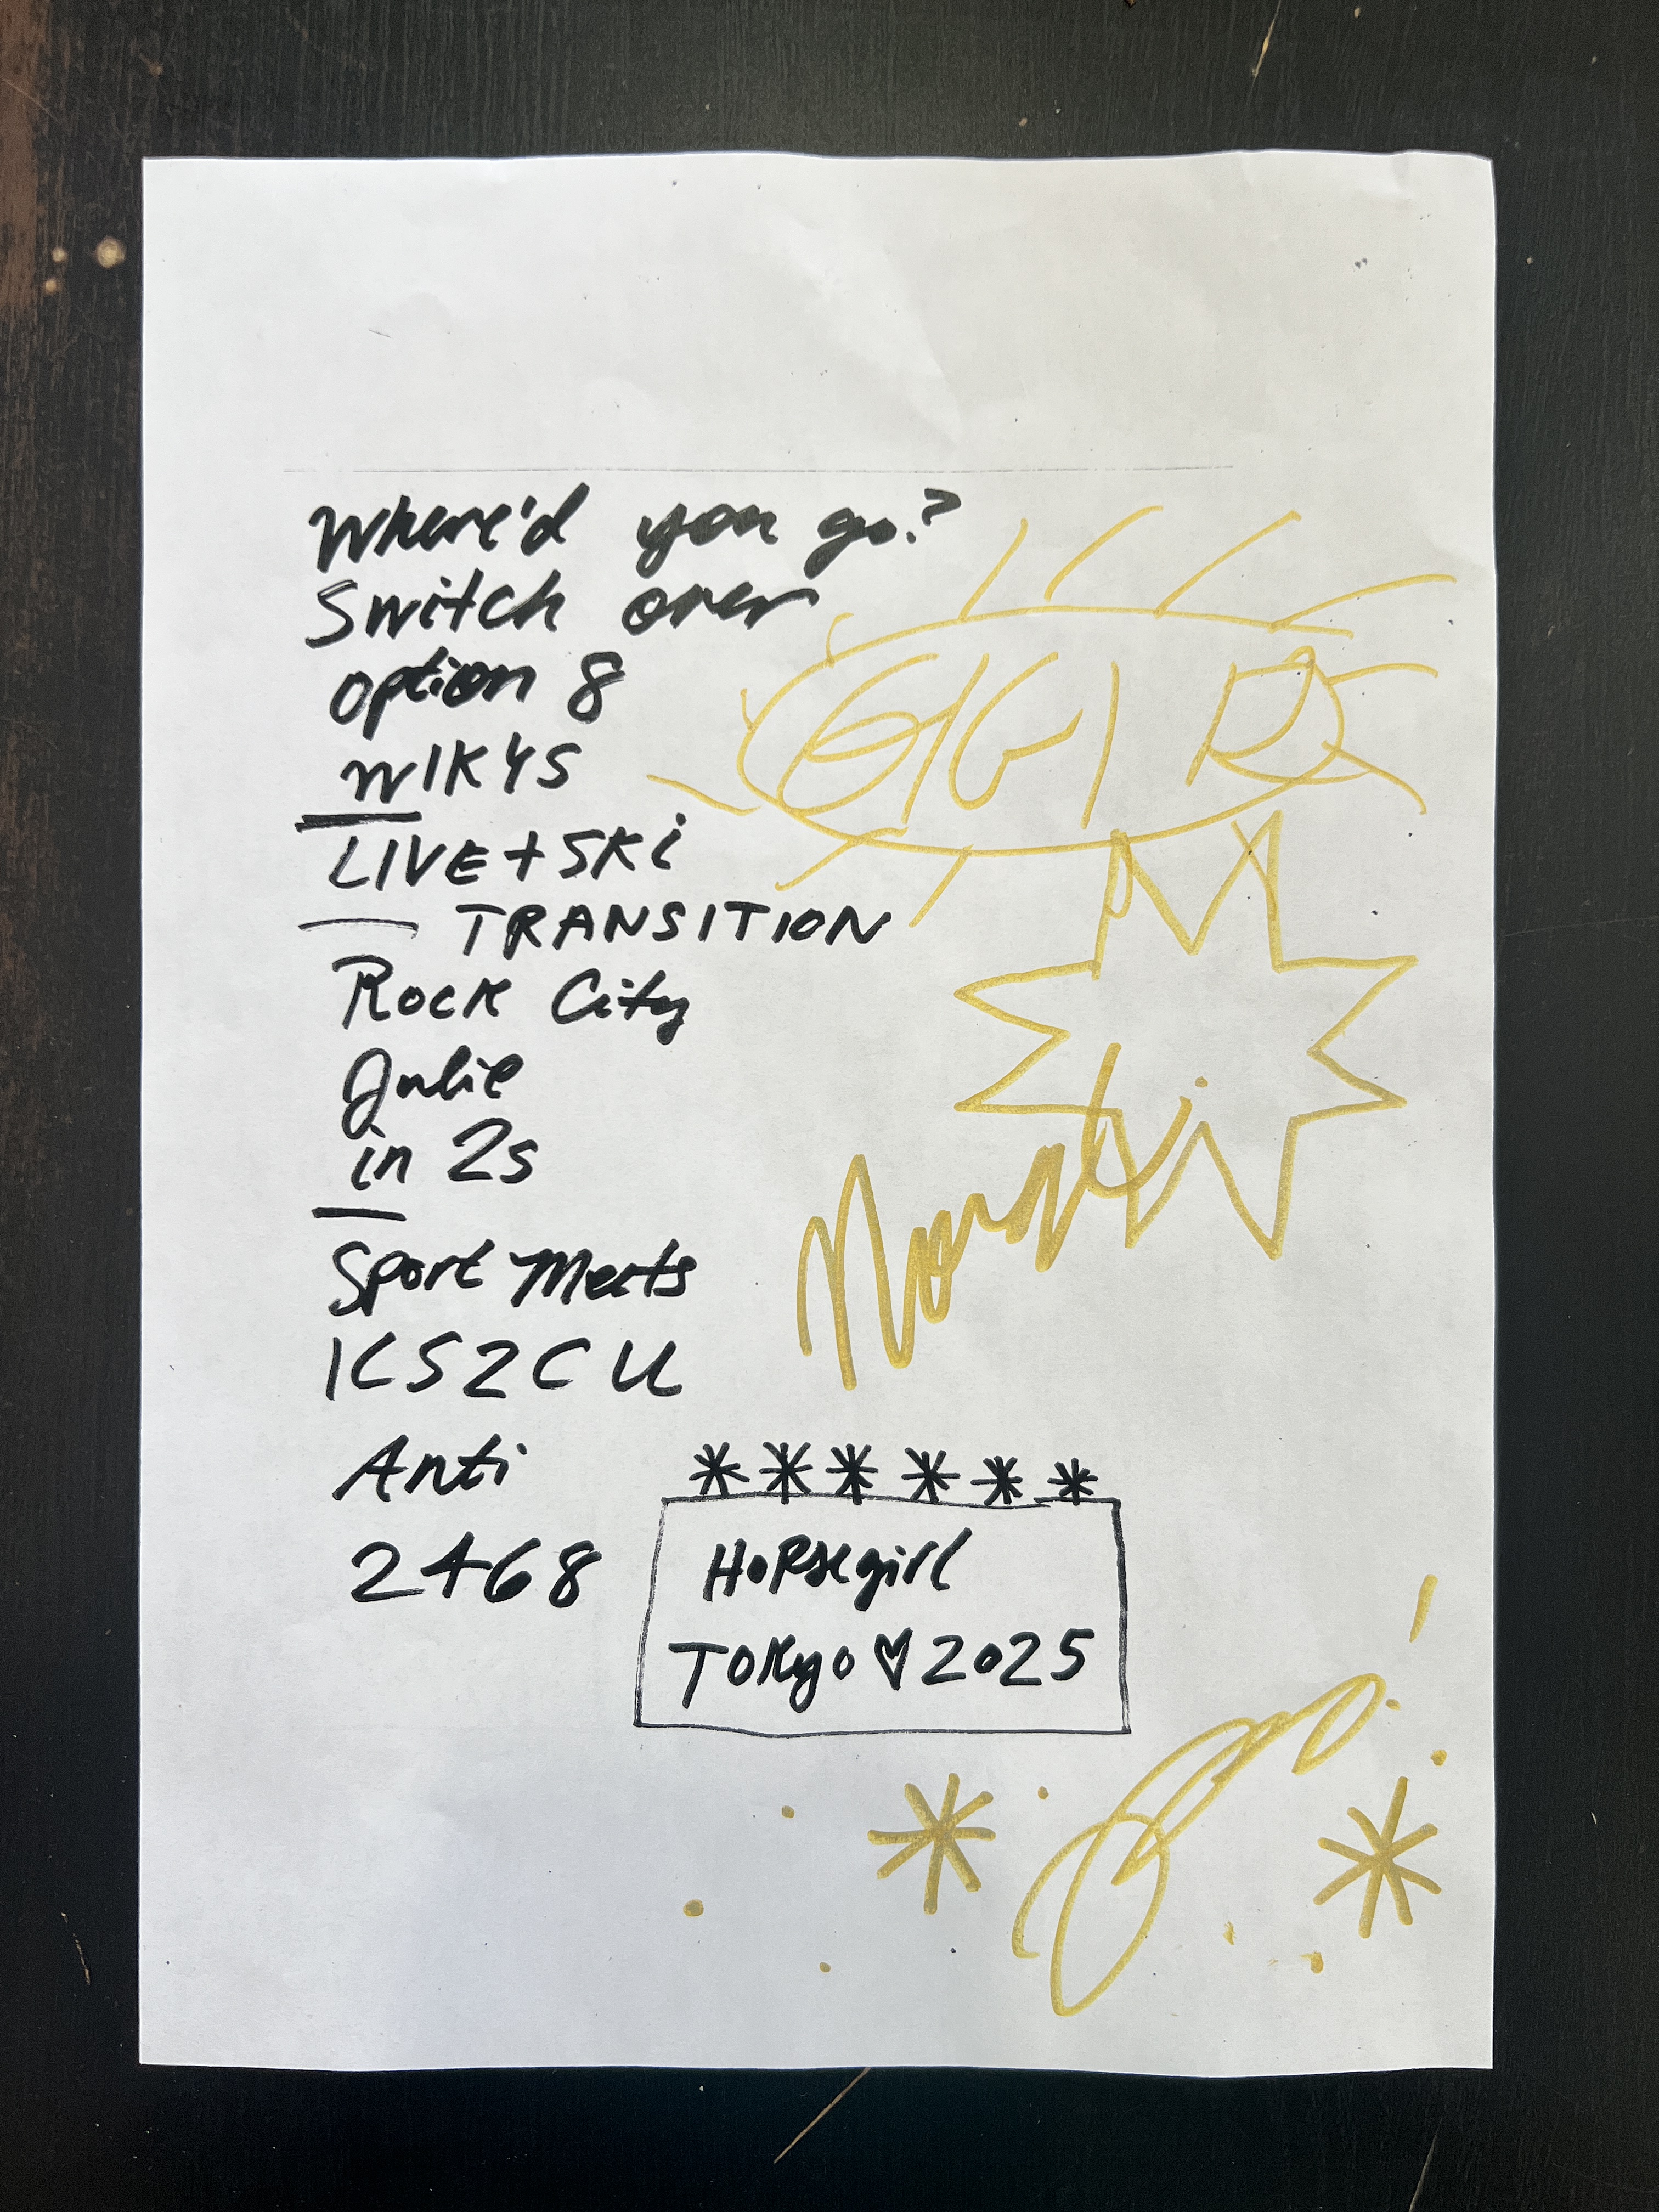 Where'd you go?
Switch over
option 8
WIKYS
LIVE + SKi
TRANSITION
Rock City
Julie
in 2s
Sport Meets
ICS2CU
Anti
2468
******
Horsegirl
Tokyo ♡ 2025
GIGI